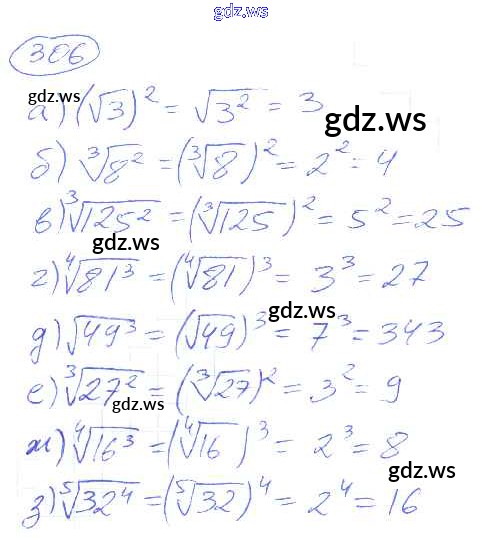 gdz.ws
306
а) (√3)² = √3² = 3
gdz.ws
gdz.ws
б) ∛8² = (∛8)² = 2² = 4
в) ∛125² = (∛125)² = 5² = 25
gdz.ws
г) ∜81³ = (∜81)³ = 3³ = 27
gdz.ws
д) √49³ = (√49)³ = 7³ = 343
е) ∛27² = (∛27)² = 3² = 9
gdz.ws
ж) ∜16³ = (∜16)³ = 2³ = 8
gdz.ws
з) ⁵√32⁴ = (⁵√32)⁴ = 2⁴ = 16